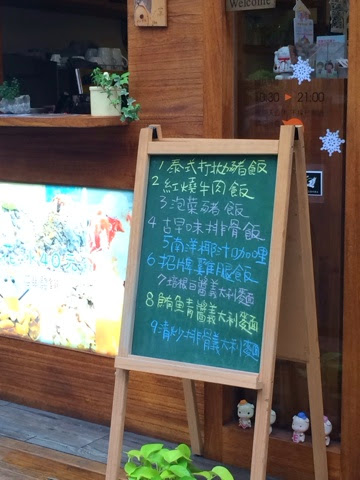 Welcome
10:30 ▶ 21:00
1 泰式打拋豬飯
2 紅燒牛肉飯
3 泡菜豬飯
4 古早味排骨飯
5 南洋椰汁咖哩
6 招牌雞腿飯
7 培根白醬義大利麵
8 鮪魚青醬義大利麵
9 清炒排骨義大利麵